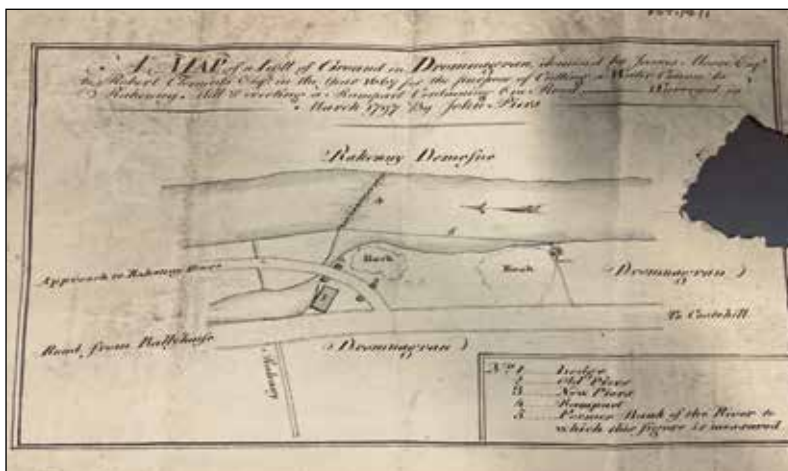 A MAP of a Lott of Ground in Dromnagran, demised by James Moore Esqr.
to Robert Clements Esqr. in the Year for the purpose of Cutting a Water Course to
Rakenny Mill & erecting a Rampart Containing Surveyed in
March 1797 By John Piers
Rakenny Demesne
4
5
Rock
Rock
Approach to Rakenny House
(Dromnagran)
To Cootehill
Road from Ballyhaise
(Dromnagran)
Nº. 1 Lodge
2 Old Piers
3 New Piers
4 Rampart
5 Former Bank of the River to
which this figure is measured